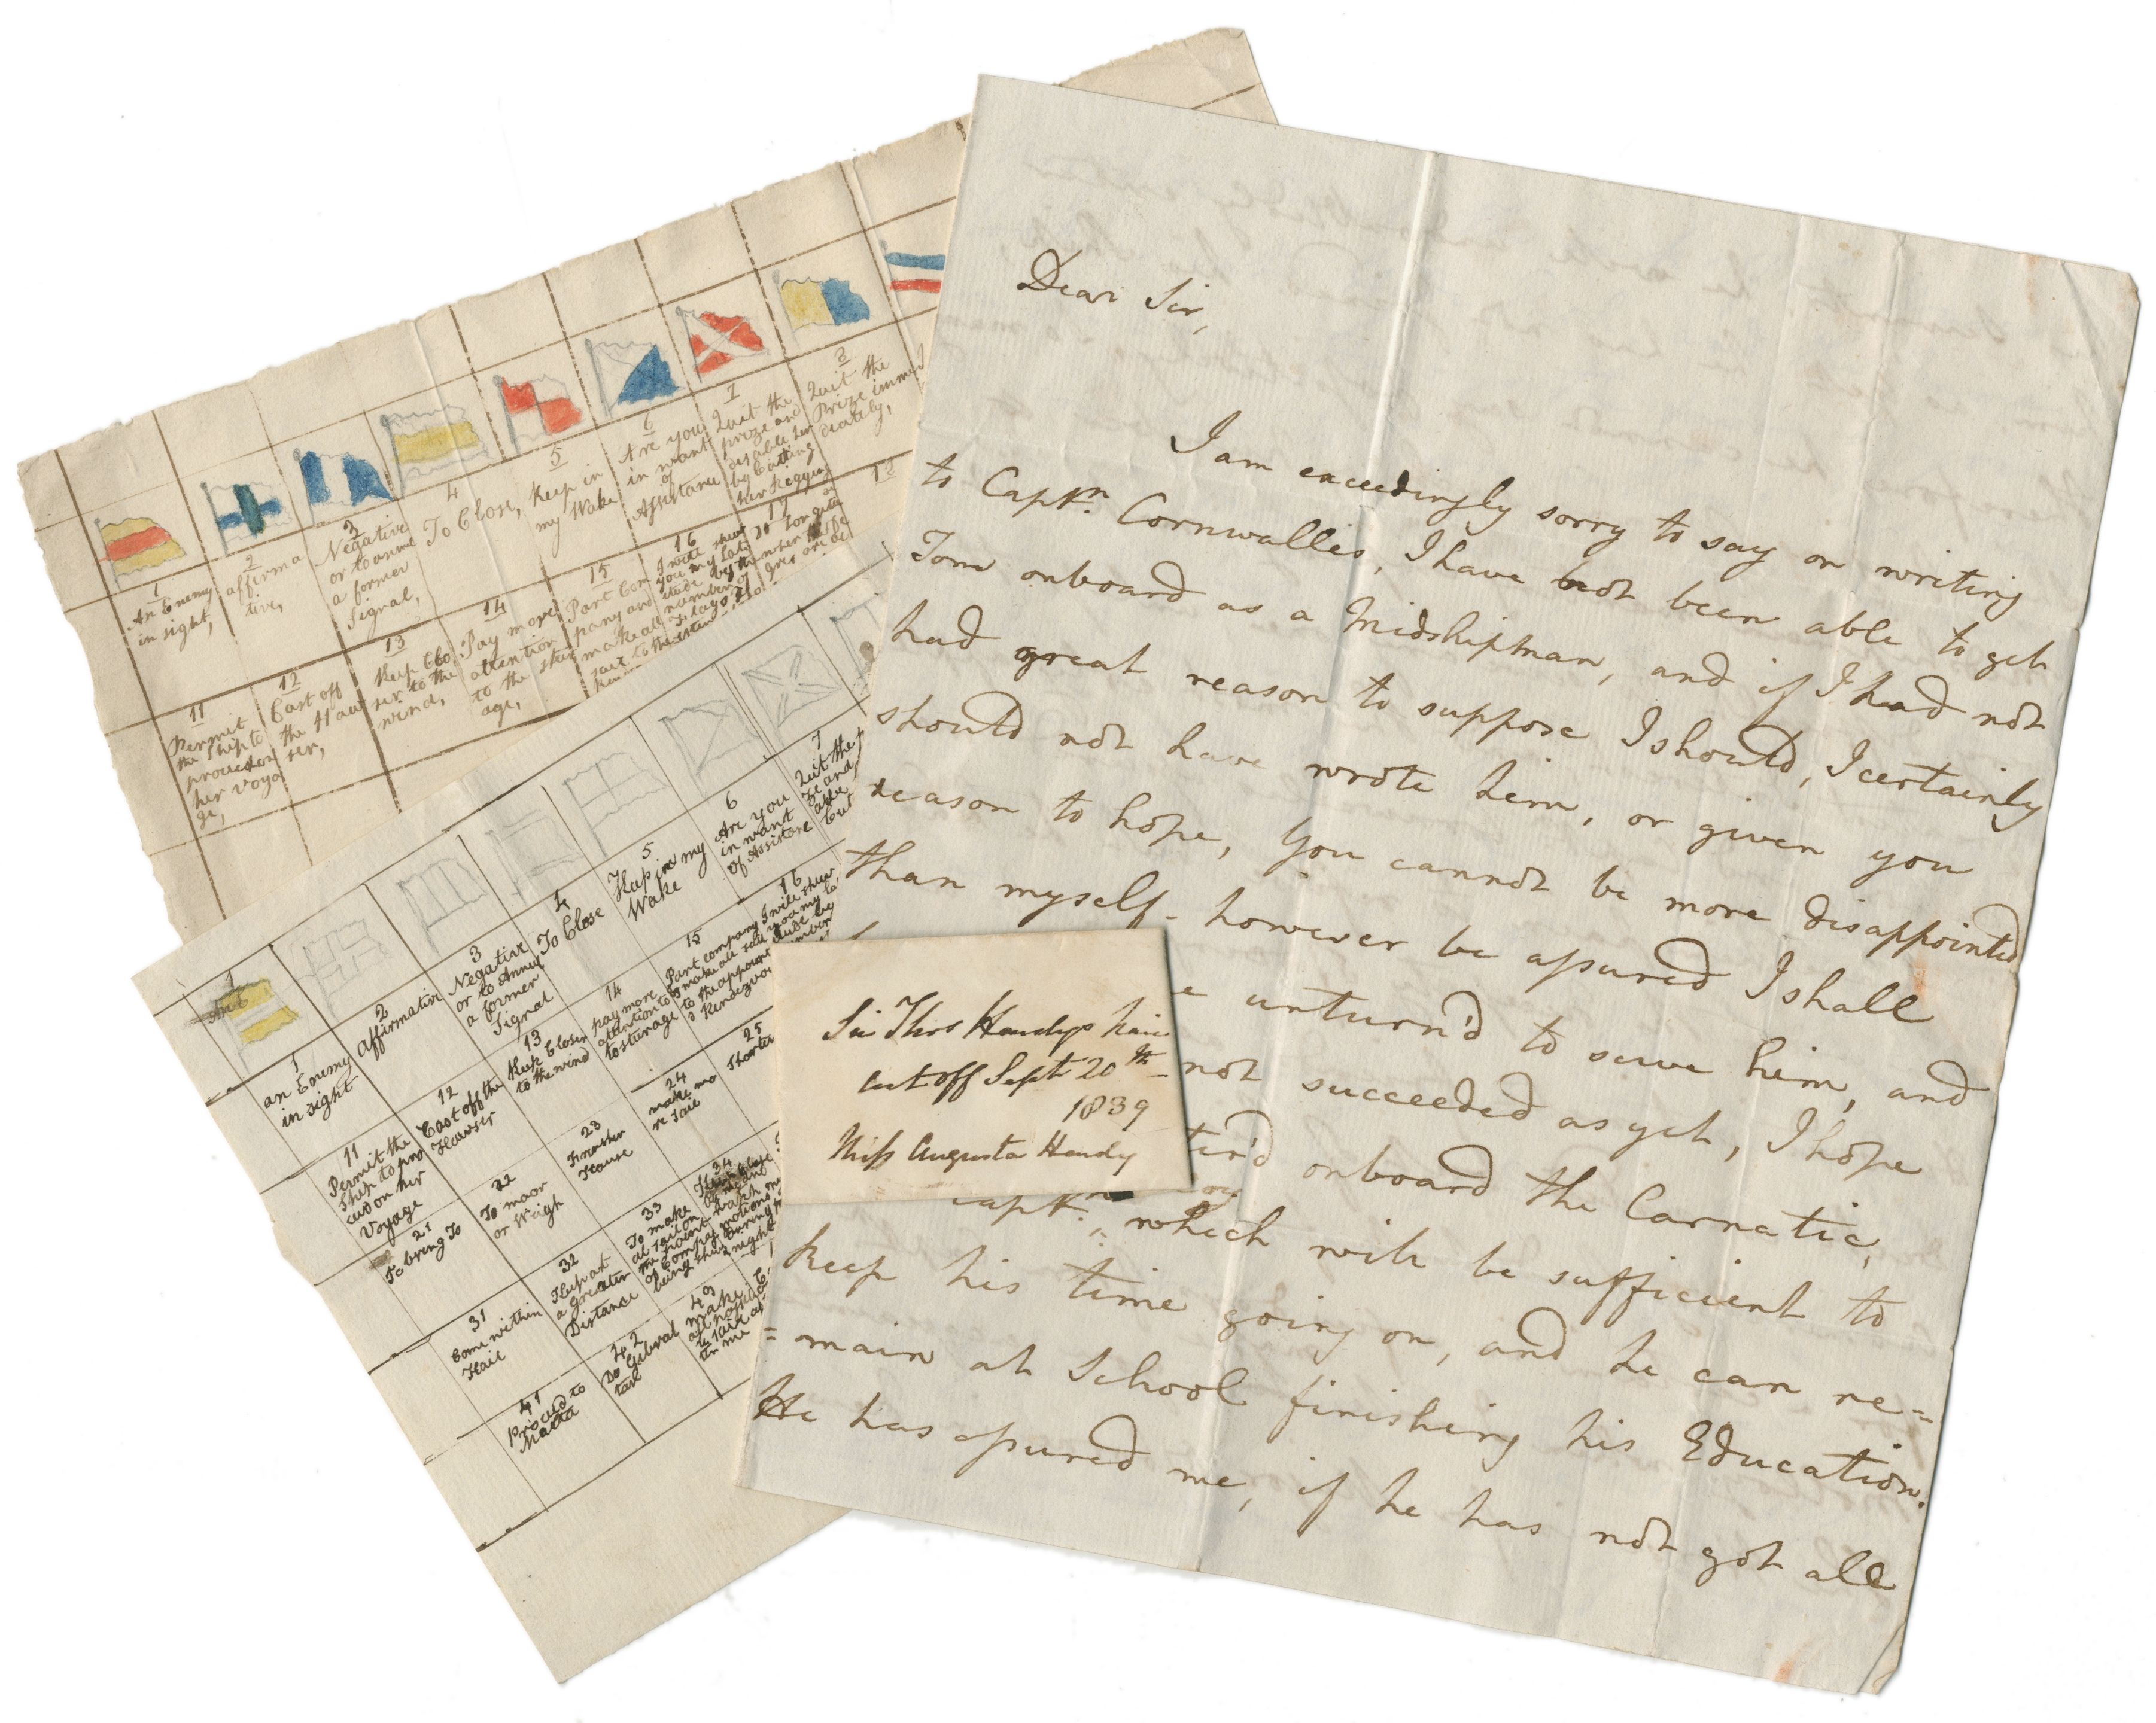 Dear Sir,
I am exceedingly sorry to say on writing
to Captn. Cornwallis, I have not been able to get
Tom onboard as a Midshipman, and if I had not
had great reason to suppose I should, I certainly
should not have wrote him, or given you
reason to hope, You cannot be more disappointed
than myself - however be assured I shall
unturn'd to serve him, and
not succeeded as yet, I hope
onboard the Carnatic,
Captn., which will be sufficient to
keep his time going on, and he can re=
=main at School finishing his Education.
He has assured me, if he has not got all
Sir Thos Hardys hair
cut off Sept 20th
1839
Miss Augusta Hardy
1
An Enemy
in sight,
2
affirma
tive,
3
Negative
or to annul
a former
Signal,
4
To Close,
5
Keep in
my Wake
6
Are you
in want
of
Assistance
7
Quit the
prize and
disable her
by Cutting
her Rigging
8
Quit the
Prize imme
diately,
11
Permit
the Ship to
proceed on
her Voya
ge,
12
Cast off
the Haw
ser,
13
Keep Clo
ser to the
wind,
14
Pay more
attention
to the steer
age,
15
Part Com
pany and
make all
sail to the
16
I will shew
you my Lati
tude by the
number of
17
18
1
an Enemy
in sight
2
Affirmative
3
Negative
or to Annul
a former
Signal
4
To Close
5
Keep in my
Wake
6
Are you
in want
of Assistance
7
Quit the
11
Permit the
Ship to pro
ceed on her
Voyage
12
Cast off the
Hawser
13
Keep Closer
to the wind
14
pay more
attention to
steerage
15
Part company
& make all sail
to the appoint
d Rendezvous
16
I will shew
you my La
titude by
number
21
To bring To
22
To moor
or Weigh
23
24
make mo
re Sail
25
Shorten
31
Come within
Hail
32
Keep at
a greater
Distance
33
To make
34
Keep Close
during the
night
41
Proceed to
Malta
42
Do Gibral
tar
43
make
all possible